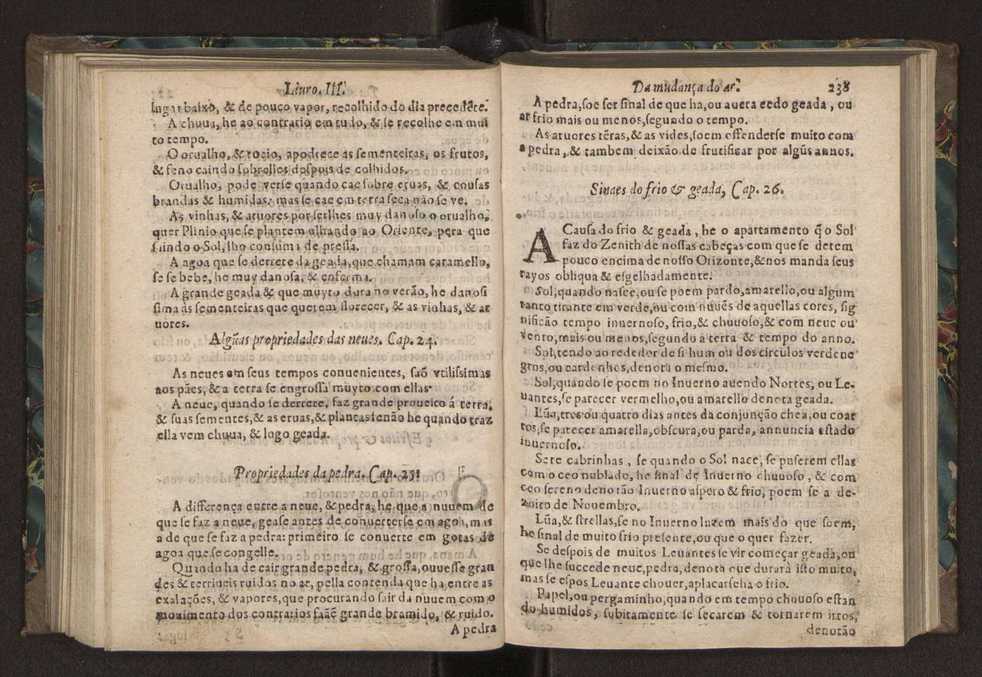 Liuro. III.
lugar baixo, & de pouco vapor, recolhido do dia precedẽte.
A chuua, he ao contrario em tudo, & se recolhe em mui
to tempo.
O orualho, & rocio, apodrece as sementeiras, os frutos,
& feno caindo sobrelles despois de colhidos.
Orualho, pode verse quando cae sobre eruas, & cousas
brandas & humidas, mas se cae em terra seca não se ve.
As vinhas, & aruores por serlhes muy danoso o orualho,
quer Plinio que se plantem olhando ao Oriente, pera que
saindo o Sol, lho consuma de pressa.
A agoa que se derrete da geada, que chamam caramello,
se se bebe, he muy danosa, & enferma.
A grande geada & que muyto dura no verão, he danosi
sima às sementeiras que querem florecer, & as vinhas, & ar
uores.
Algũas propriedades das neues. Cap. 24.
As neues em seus tempos conuenientes, saõ vtilissimas
aos pães, & a terra se engrossa muyto com ellas.
A neue, quando se derrete, faz grande proueito á terra,
& suas sementes, & as eruas, & plantas senão he quando traz
ella vem chuua, & logo geada.
Propriedades da pedra. Cap. 25.
A differença entre a neue, & pedra, he que a nuuem de
que se faz a neue, gease antes de conuerterse em agoa, mas
a de que se faz a pedra: primeiro se conuerte em gotas de
agoa que se congelle.
Quando ha de cair grande pedra, & grossa, ouuesse gran
des & terriueis ruidos no ar, pella contenda que ha entre as
exalações, & vapores, que procurando sair da nuuem com o
mouimento dos contrarios faẽ grande bramido, & ruido.
A pedra
Da mudança do ar. 238
A pedra, soe ser sinal de que ha, ou auera cedo geada, ou
ar frio mais ou menos, segundo o tempo.
As aruores tẽras, & as vides, soem offenderse muito com
a pedra, & tambem deixão de frutificar por algũs annos.
Sinaes do frio & geada, Cap. 26.
A Causa do frio & geada, he o apartamento q̃ o Sol
faz do Zenith de nossas cabeças com que se detem
pouco encima de nosso Orizonte, & nos manda seus
rayos obliqua & esgelhadamente.
Sol, quando nasce, ou se poem pardo, amarello, ou algum
tanto tirante em verde, ou com nuuẽs de aquellas cores, sig
nificão tempo inuernoso, frio, & chuuoso, & com neue ou
vento, mais ou menos, segundo a terra & tempo do anno.
Sol, tendo ao rededor de si hum ou dos circulos verdene
gros, ou cardenhos, denota o mesmo.
Sol, quando se poem no Inuerno auendo Nortes, ou Le-
uantes, se parecer vermelho, ou amarello denota geada.
Lũa, tres ou quatro dias antes da conjunção chea, ou coar
tos, se parecer amarella, obscura, ou parda, annuncia estado
inuernoso.
Sete cabrinhas, se quando o Sol nace, se puserem ellas
com o ceo nublado, he sinal de Inuerno chuuoso, & com
ceo sereno denotão Inuerno aspero & frio, poem se a de-
zoito de Nouembro.
Lũa, & strellas, se no Inuerno luzem mais do que soem,
he sinal de muito frio presente, ou que o quer fazer.
Se despois de muitos Leuantes se vir começar geada, ou
que lhe succede neue, pedra, denota que durará isto muito,
mas se espos Leuante chouer, aplacarscha o frio.
Papel, ou pergaminho, quando em tempo chouoso estan
do humidos, subitamente se secarem & tornarem irros,
denotão